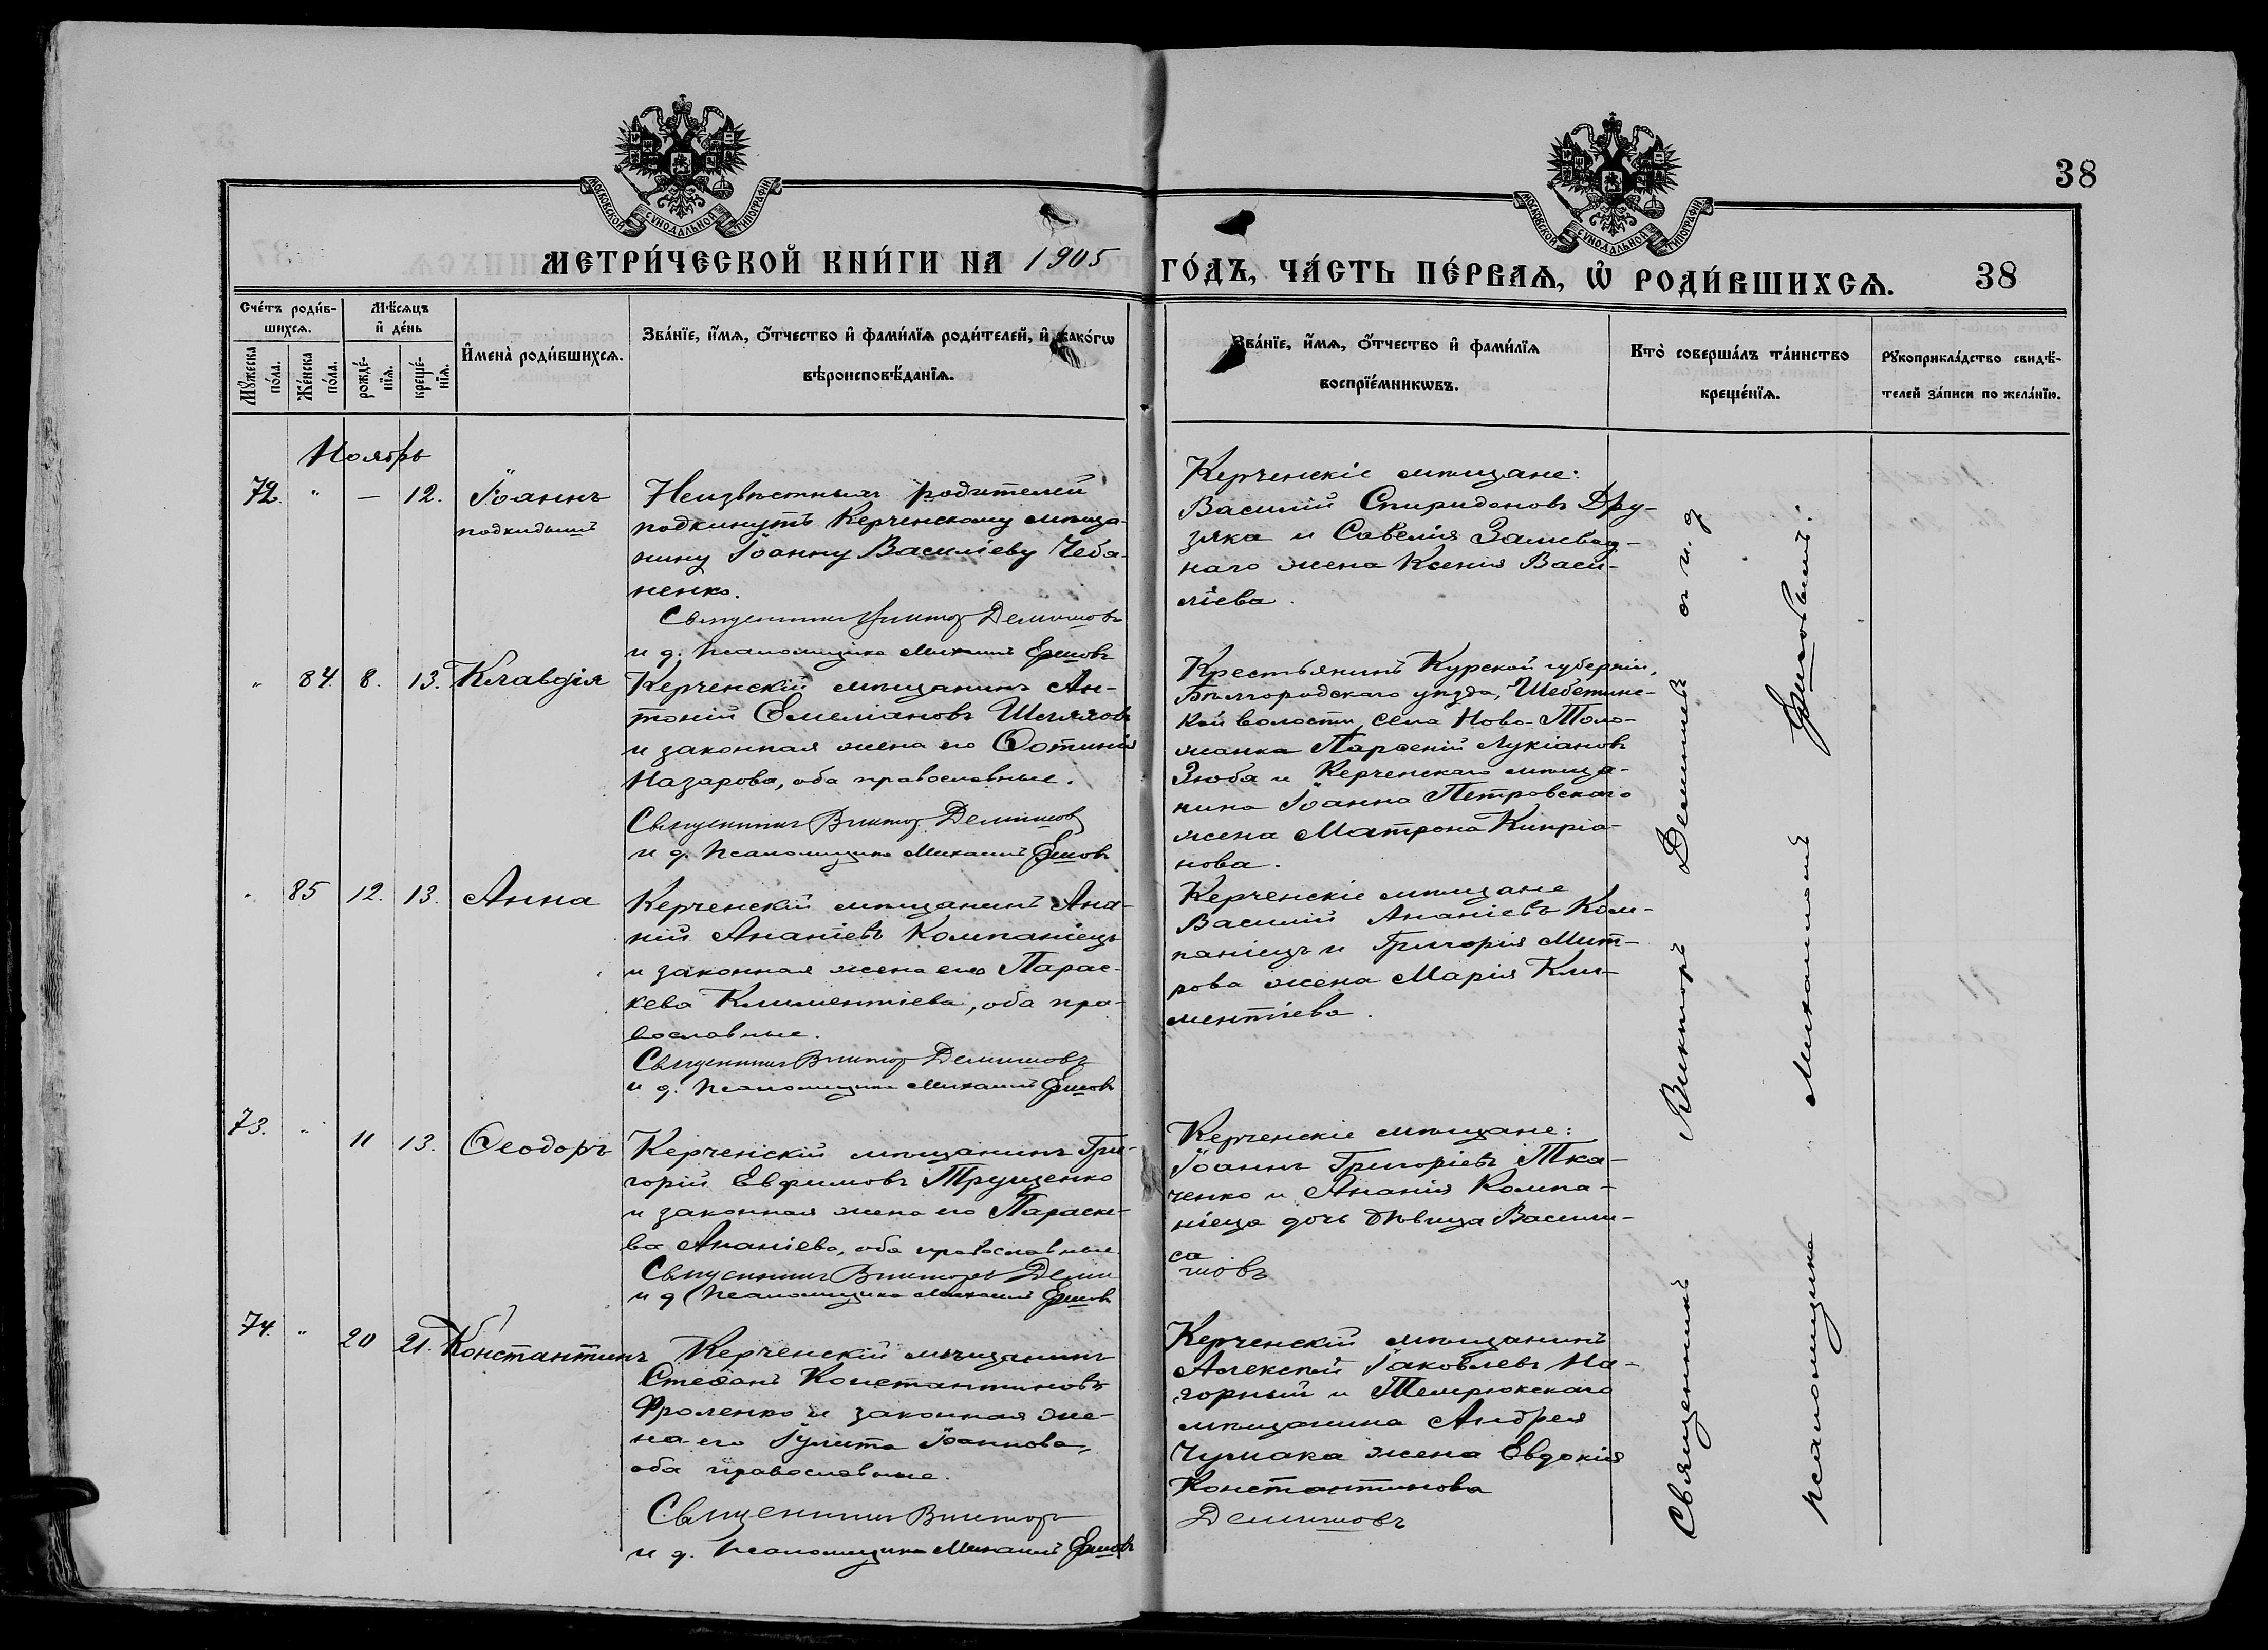 38
МОСКОВСКОЙ СУНОДАЛЬНОЙ ТИПОГРАФІИ
МОСКОВСКОЙ СУНОДАЛЬНОЙ ТИПОГРАФІИ
МЕТРИ́ЧЕСКОЙ КНИ́ГИ НА 1905 ГО́ДЪ, ЧА́СТЬ ПЕ́РВАѦ, Ѡ РОДИ́ВШИХСѦ. 38
Сче́тъ роди́в-
шихсѧ.
Мѣ́сѧцъ
и҆ де́нь
Мꙋ́жеска
по́ла.
Же́нска
по́ла.
рожде́-
нїѧ.
креще́-
нїѧ.
И҆мена̀ роди́вшихсѧ.
Зва́нїе, и҆́мѧ, ѻ҆́тчество и҆ фами́лїѧ роди́телей, и҆ како́гѡ
вѣроисповѣ́данїѧ.
Зва́нїе, и҆́мѧ, ѻ҆́тчество и҆ фами́лїѧ
воспрїе́мникѡвъ.
Кто̀ соверша́лъ та́инство
креще́нїѧ.
Рꙋкоприкла́дство свидѣ́-
телей за́писи по жела́нїю.
Ноябрь
72. " — 12. Іоаннъ
подкидышъ
Неизвѣстныхъ родителей
подкинутъ Керченскому мѣща-
нину Іоанну Василіеву Чеба-
ненко.
Священникъ Викторъ Демишовъ
и д. псаломщика Михаилъ Ершовъ
Керченскіе мѣщане:
Василій Спиридоновъ Дру-
зяка и Савелія
наго жена Ксенія Васи-
ліева.
" 84. 8. 13. Клавдія
Керченскій мѣщанинъ Ан-
тоній Емеліановъ Шеляговъ
и законная жена его Ѳотинія
Назарова, оба православные.
Священникъ Викторъ Демишовъ
и д. псаломщика Михаилъ Ершовъ
Крестьянинъ Курской губерніи,
Бѣлгородскаго уѣзда, Шебетинс-
кой волости, села Ново-Толо-
жанка Парѳеній Лукіановъ
Зюба и Керченскаго мѣща-
нина Іоанна Петровскаго
жена Матрона Кипріа-
нова.
" 85 12. 13. Анна
Керченскій мѣщанинъ Ана-
ній Ананіевъ Компаніецъ
и законная жена его Парас-
кева Климентіева, оба пра-
вославные.
Священникъ Викторъ Демишовъ
и д. псаломщика Михаилъ Ершовъ
Керченскіе мѣщане
Василій Ананіевъ Ком-
паніецъ и Григорія Мит-
рова жена Марія Кли-
ментіева.
73. " 11 13. Ѳеодоръ
Керченскій мѣщанинъ Гри-
горій Евфимовъ Трущенко
и законная жена его Параске-
ва Ананіева, оба православные
Священникъ Викторъ Деми
шовъ
и д. псаломщика Михаилъ Ершовъ
Керченскіе мѣщане:
Іоаннъ Григоріевъ Тка-
ченко и Ананія Компа-
ніеца дочь дѣвица Васили-
са
74. " 20 21. Константинъ
Керченскій мѣщанинъ
Стефанъ Константиновъ
Фроленко и законная же-
на его Іулита Іоаннова,
оба православные.
Священникъ Викторъ
Демишовъ
и д. псаломщика Михаилъ Ершовъ
Керченскій мѣщанинъ
Алексѣй Іаковлевъ На-
горный и Темрюкскаго
мѣщанина Андрея
Чумака жена Евдокія
Константинова
Священникъ Викторъ Демишевъ съ и. д.
псаломщика Михаиломъ Ершовымъ.